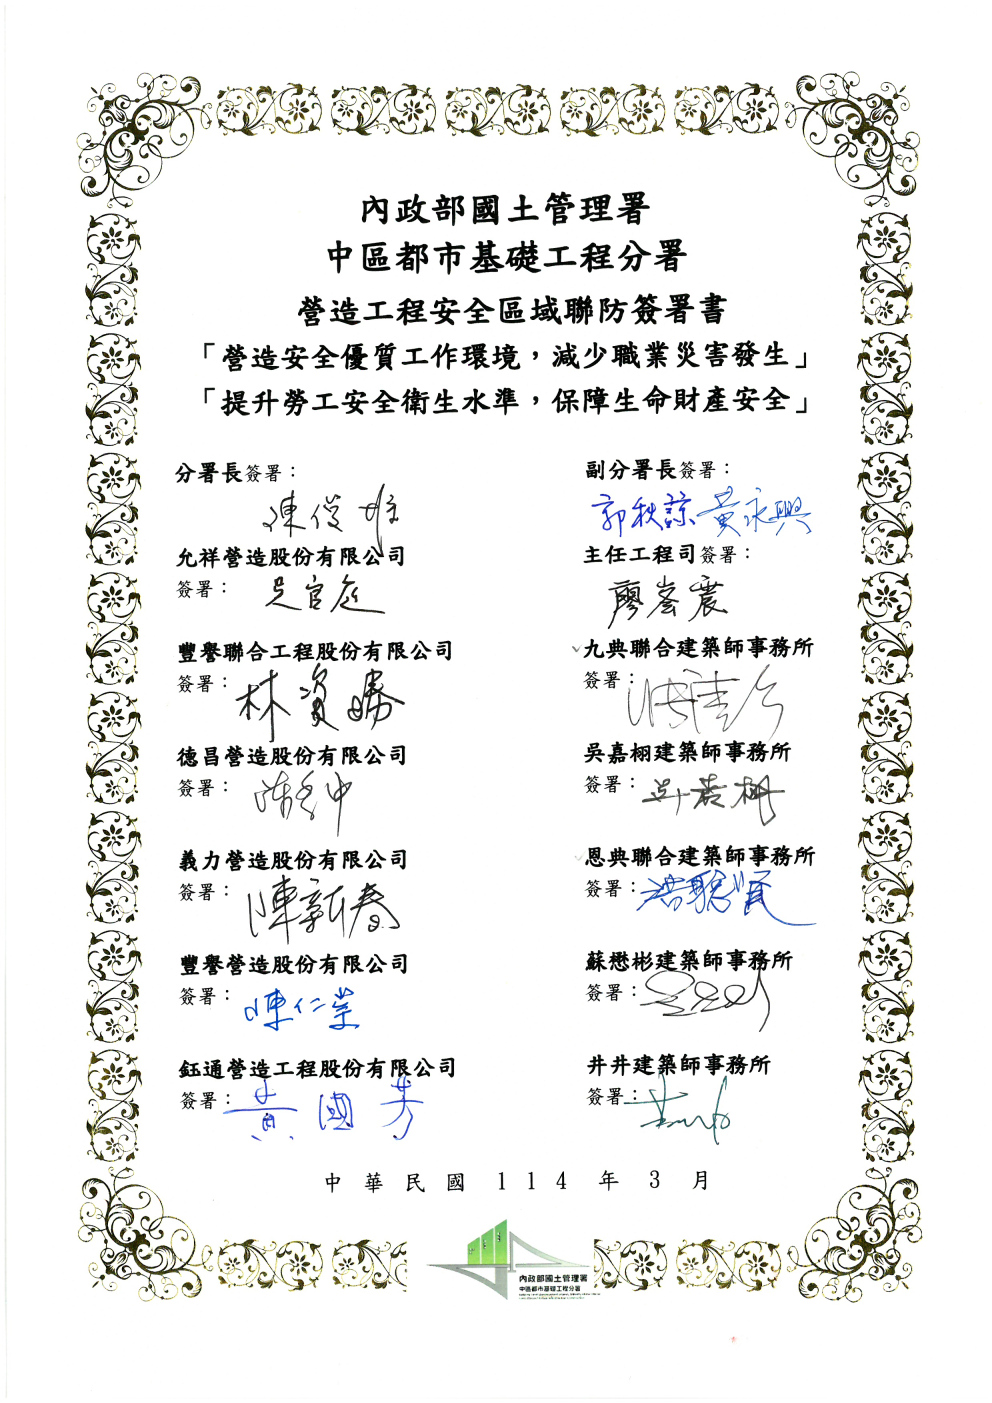 內政部國土管理署
中區都市基礎工程分署
營造工程安全區域聯防簽署書
「營造安全優質工作環境，減少職業災害發生」
「提升勞工安全衛生水準，保障生命財產安全」
分署長簽署：
副分署長簽署：
郭秋諒 黃永興
允祥營造股份有限公司
簽署：
主任工程司簽署：
廖崟震
豐譽聯合工程股份有限公司
簽署：林資勝
九典聯合建築師事務所
簽署：
德昌營造股份有限公司
簽署：
吳嘉栩建築師事務所
簽署：吳嘉栩
義力營造股份有限公司
簽署：陳新春
恩典聯合建築師事務所
簽署：
豐譽營造股份有限公司
簽署：陳仁業
蘇懋彬建築師事務所
簽署：
鈺通營造工程股份有限公司
簽署：黃國芳
井井建築師事務所
簽署：
中華民國 114 年 3 月
內政部國土管理署
中區都市基礎工程分署